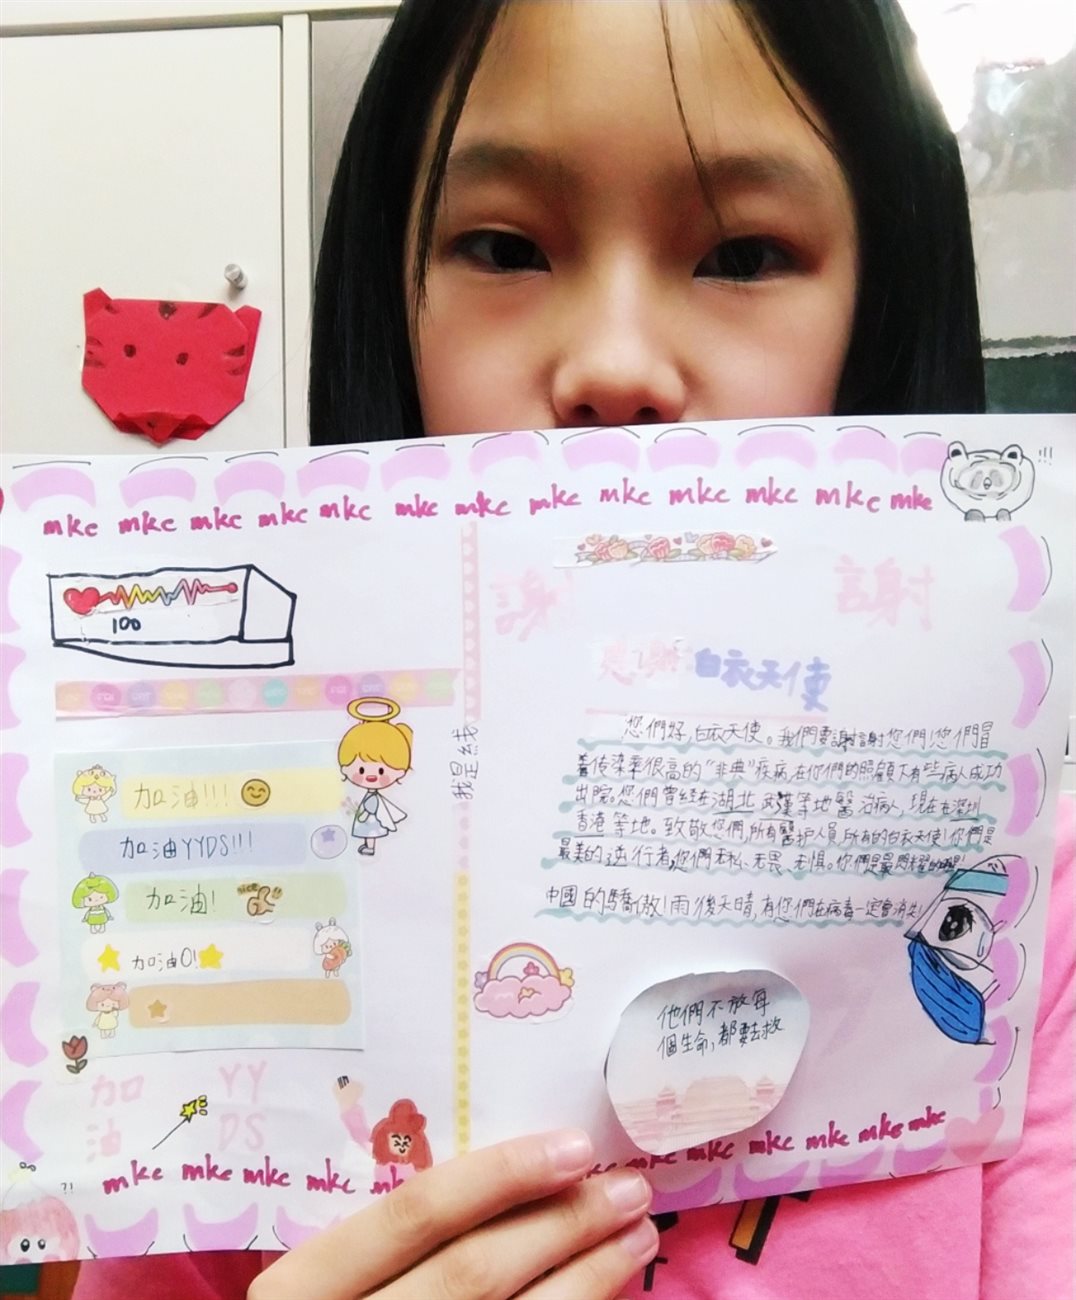 mkc mkc mkc mkc mkc mkc mkc mkc mkc mkc mkc mkc mkc
!!!
100
加油!!!
加油YYDS!!!
加油!
nice
加油!
加油
YY
DS
?!
mkc mkc mkc mkc mkc
我是线
謝 謝
感謝白衣天使
您們好,白衣天使。我們要謝謝您們!您們冒
着傳染率很高的"非典"疾病,在你們的照顧下有些病人成功
出院。您們曾經在湖北武漢等地醫治病人,現在在深圳
香港等地。致敬您們,所有醫护人員,所有的白衣天使!你們是
最美的逆行者,您們無私、無畏、無惧。你們是最閃耀的
中國的驕傲!雨後天晴,有您們在病毒一定會消失!
他們不放每
個生命,都要去救
mkc mkc mkc mkc mkc mkc